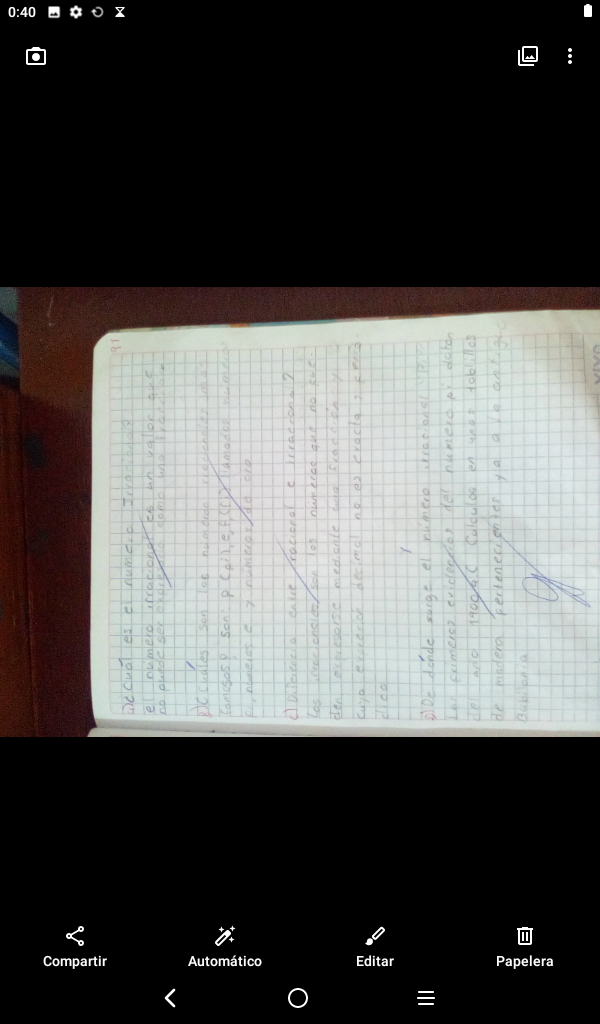 0:40
91
a) ¿Cuál es el numero Irracional
el numero irracional es un valor que
no puede ser expresado como una fracción
b) ¿Cuáles son los numeros irracionales mas
famosos? son p (pi), e, llamados numero
pi, numeros e y numeros de oro
c) Diferencia entre racional e irracional?
los irracionales son los numeros que no pue-
den expresarse mediante una fracción y
cuya expresión decimal no es exacta y perio-
dica
d) De dónde surge el número irracional
Los primeros evidencias del numero pi datan
del año 1900 a.C Calculos en unas tablillas
de madera pertenecientes a la antigua
Babilonia
Compartir
Automático
Editar
Papelera